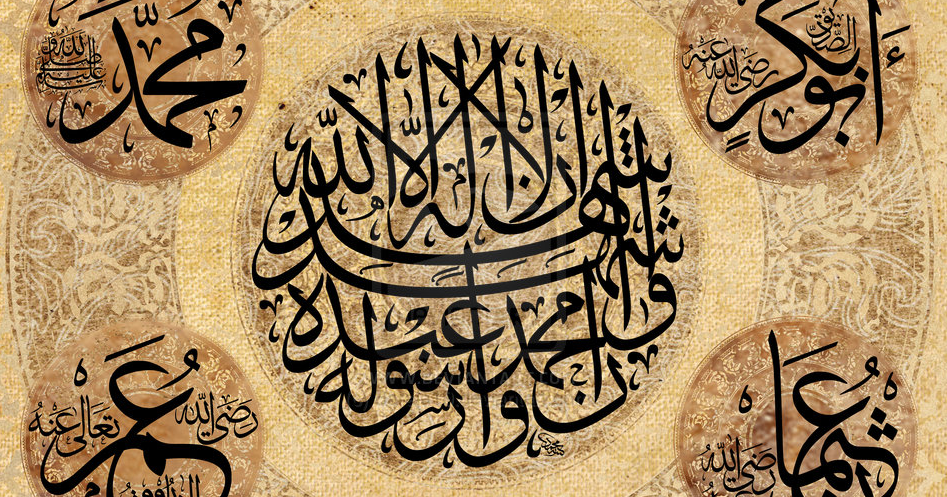 أبو بكر الصديق
رضي الله عنه
محمد
صلى الله عليه وسلم
أشهد ان لا اله الا الله
وأشهد ان محمدا عبده ورسوله
عثمان
رضي الله
عمر
رضي الله تعالى عنه